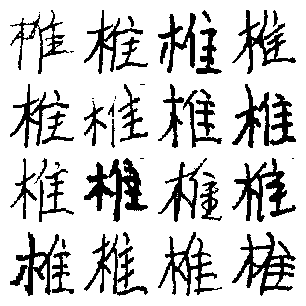 椎椎椎椎
椎椎椎椎
椎椎椎椎
椎椎椎椎